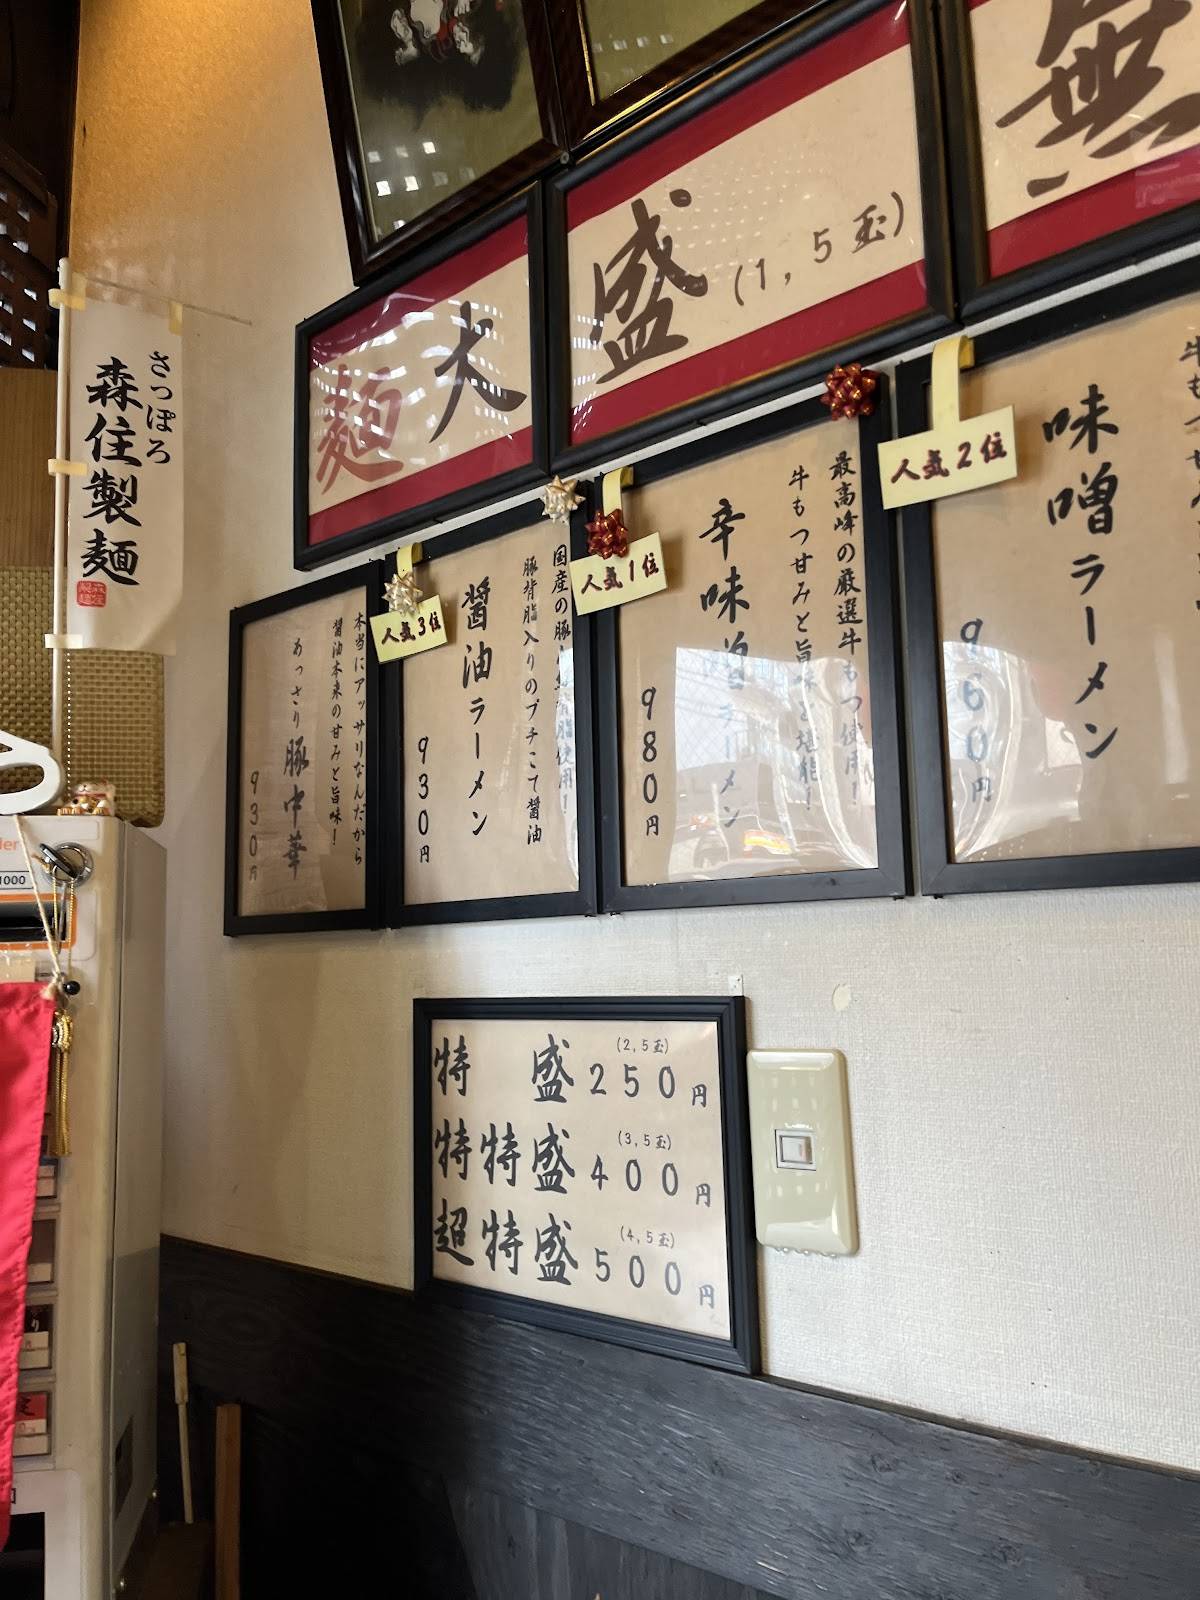 さっぽろ
森住製麺
麺
大
盛
(1,5玉)
無
味噌ラーメン
960円
人気2位
最高峰の厳選牛もつ使用!
牛もつ甘みと旨味を堪能!
辛味噌ラーメン
980円
人気1位
豚背脂入りのプチこて醤油
醤油ラーメン
930円
人気3位
本当にアッサリなんだから
醤油本来の甘みと旨味!
あっさり豚中華
930円
特 盛 (2,5玉) 250円
特特盛 (3,5玉) 400円
超特盛 (4,5玉) 500円
1000